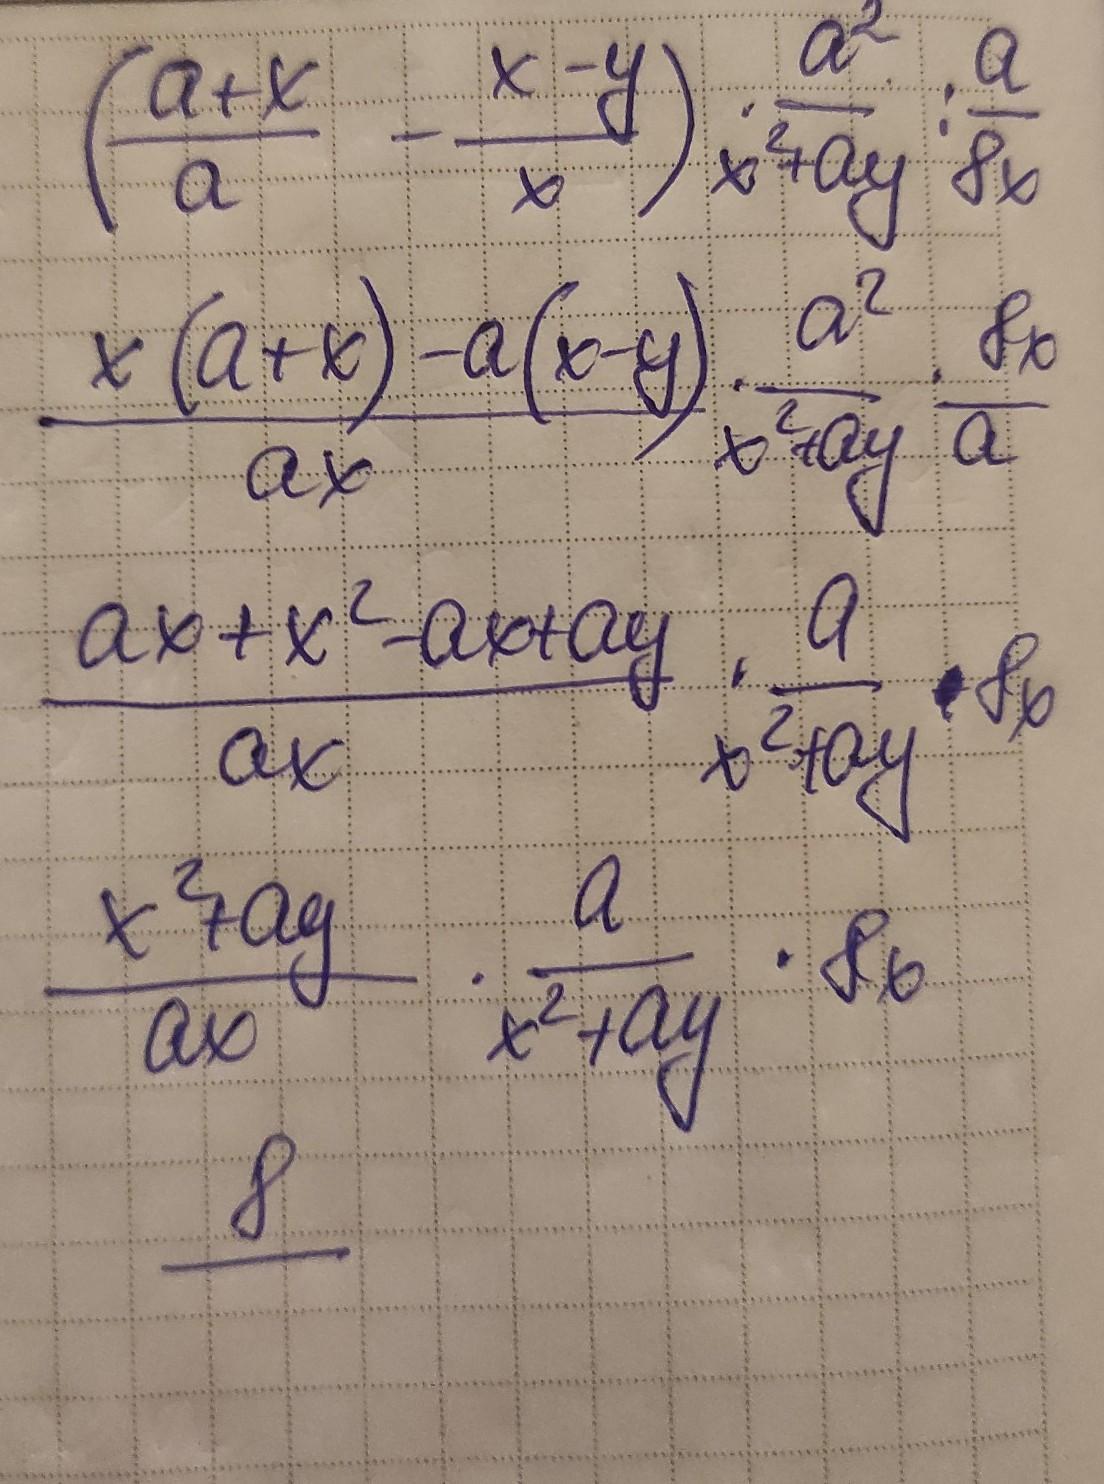 (a+x/a - x-y/x) · a²/x²+ay : a/8x
x(a+x)-a(x-y)/ax · a²/x²+ay · 8x/a
ax+x²-ax+ay/ax · a/x²+ay · 8x
x²+ay/ax · a/x²+ay · 8x
8